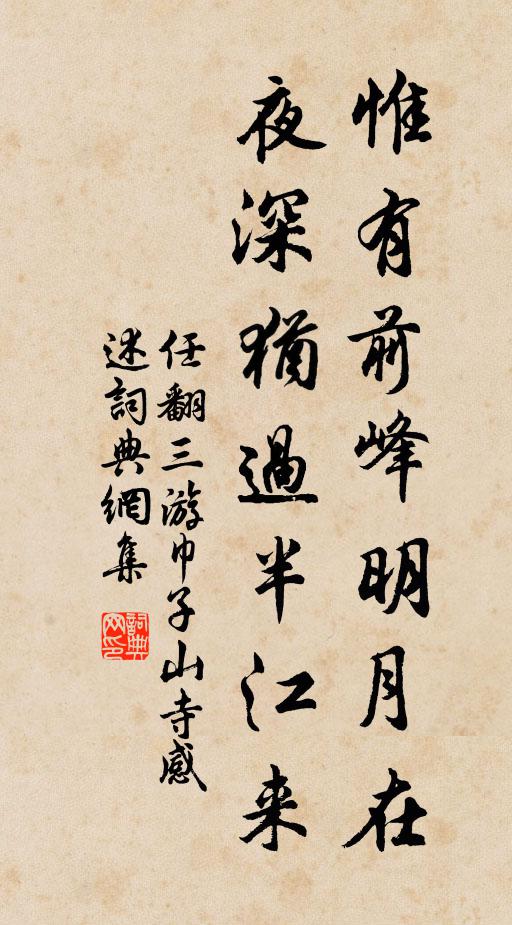 惟有前峰明月在
夜深猶過半江来
任翻三游巾子山寺感
述詞典網集
詞典網印